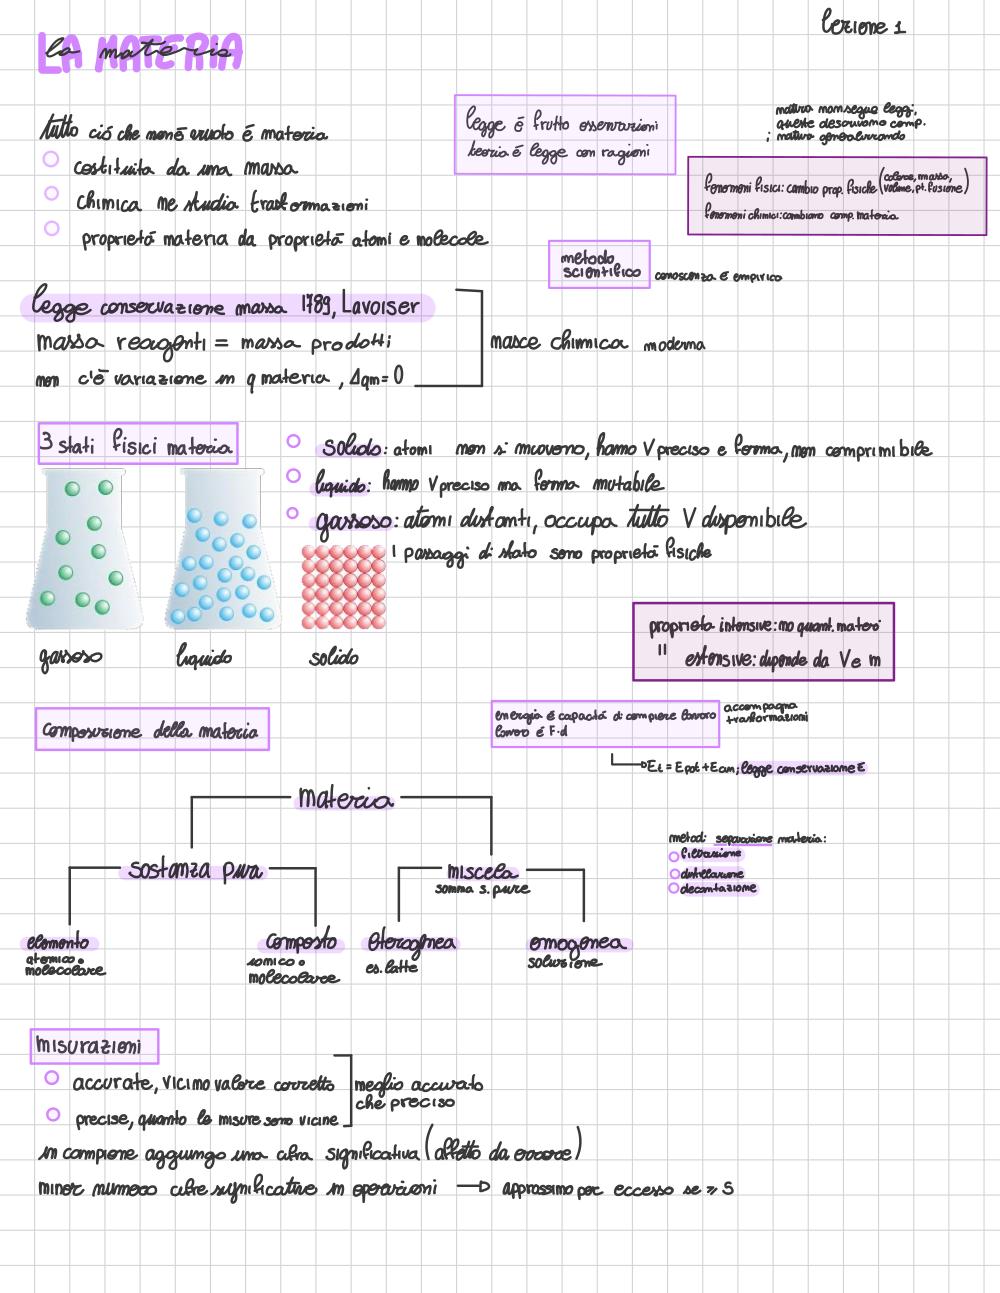 lezione 1
LA MATERIA
la materia
tutto ció che non é vuoto é materia
costituita da una massa
chimica ne studia trasformazioni
proprietá materia da proprietá atomi e molecole
legge é frutto osservazioni
teoria é legge con ragioni
natura non segue leggi,
queste descrivono comp.
natura generalizzando
fenomeni fisici: cambio prop. fisiche (colore, massa, volume, pt. fusione)
fenomeni chimici: cambiano comp. materia
metodo
scientifico
conoscenza é empirico
legge conservazione massa 1789, Lavoiser
massa reagenti = massa prodotti
non c'é variazione in q materia, Δqm = 0
nasce chimica moderna
3 stati fisici materia
solido: atomi non si muovono, hanno V preciso e forma, non comprimibile
liquido: hanno V preciso ma forma mutabile
gassoso: atomi distanti, occupa tutto V disponibile
i passaggi di stato sono proprietá fisiche
gassoso
liquido
solido
proprietá intensive: no quant. materia
" estensive: dipende da V e m
composizione della materia
energia é capacitá di compiere lavoro
lavoro é F·d
accompagna
trasformazioni
Et = Epot + Ecin; legge conservazione E
materia
sostanza pura
miscela
somma s. pure
metodi separazione materia:
filtrazione
distillazione
decantazione
elemento
atomico o
molecolare
composto
ionico o
molecolare
eterogenea
es. latte
omogenea
soluzione
misurazioni
accurate, vicino valore corretto
precise, quanto le misure sono vicine
meglio accurato
che preciso
in campione aggiungo una cifra significativa (affetto da errore)
minor numero cifre significative in operazioni → approssimo per eccesso se ≥ 5